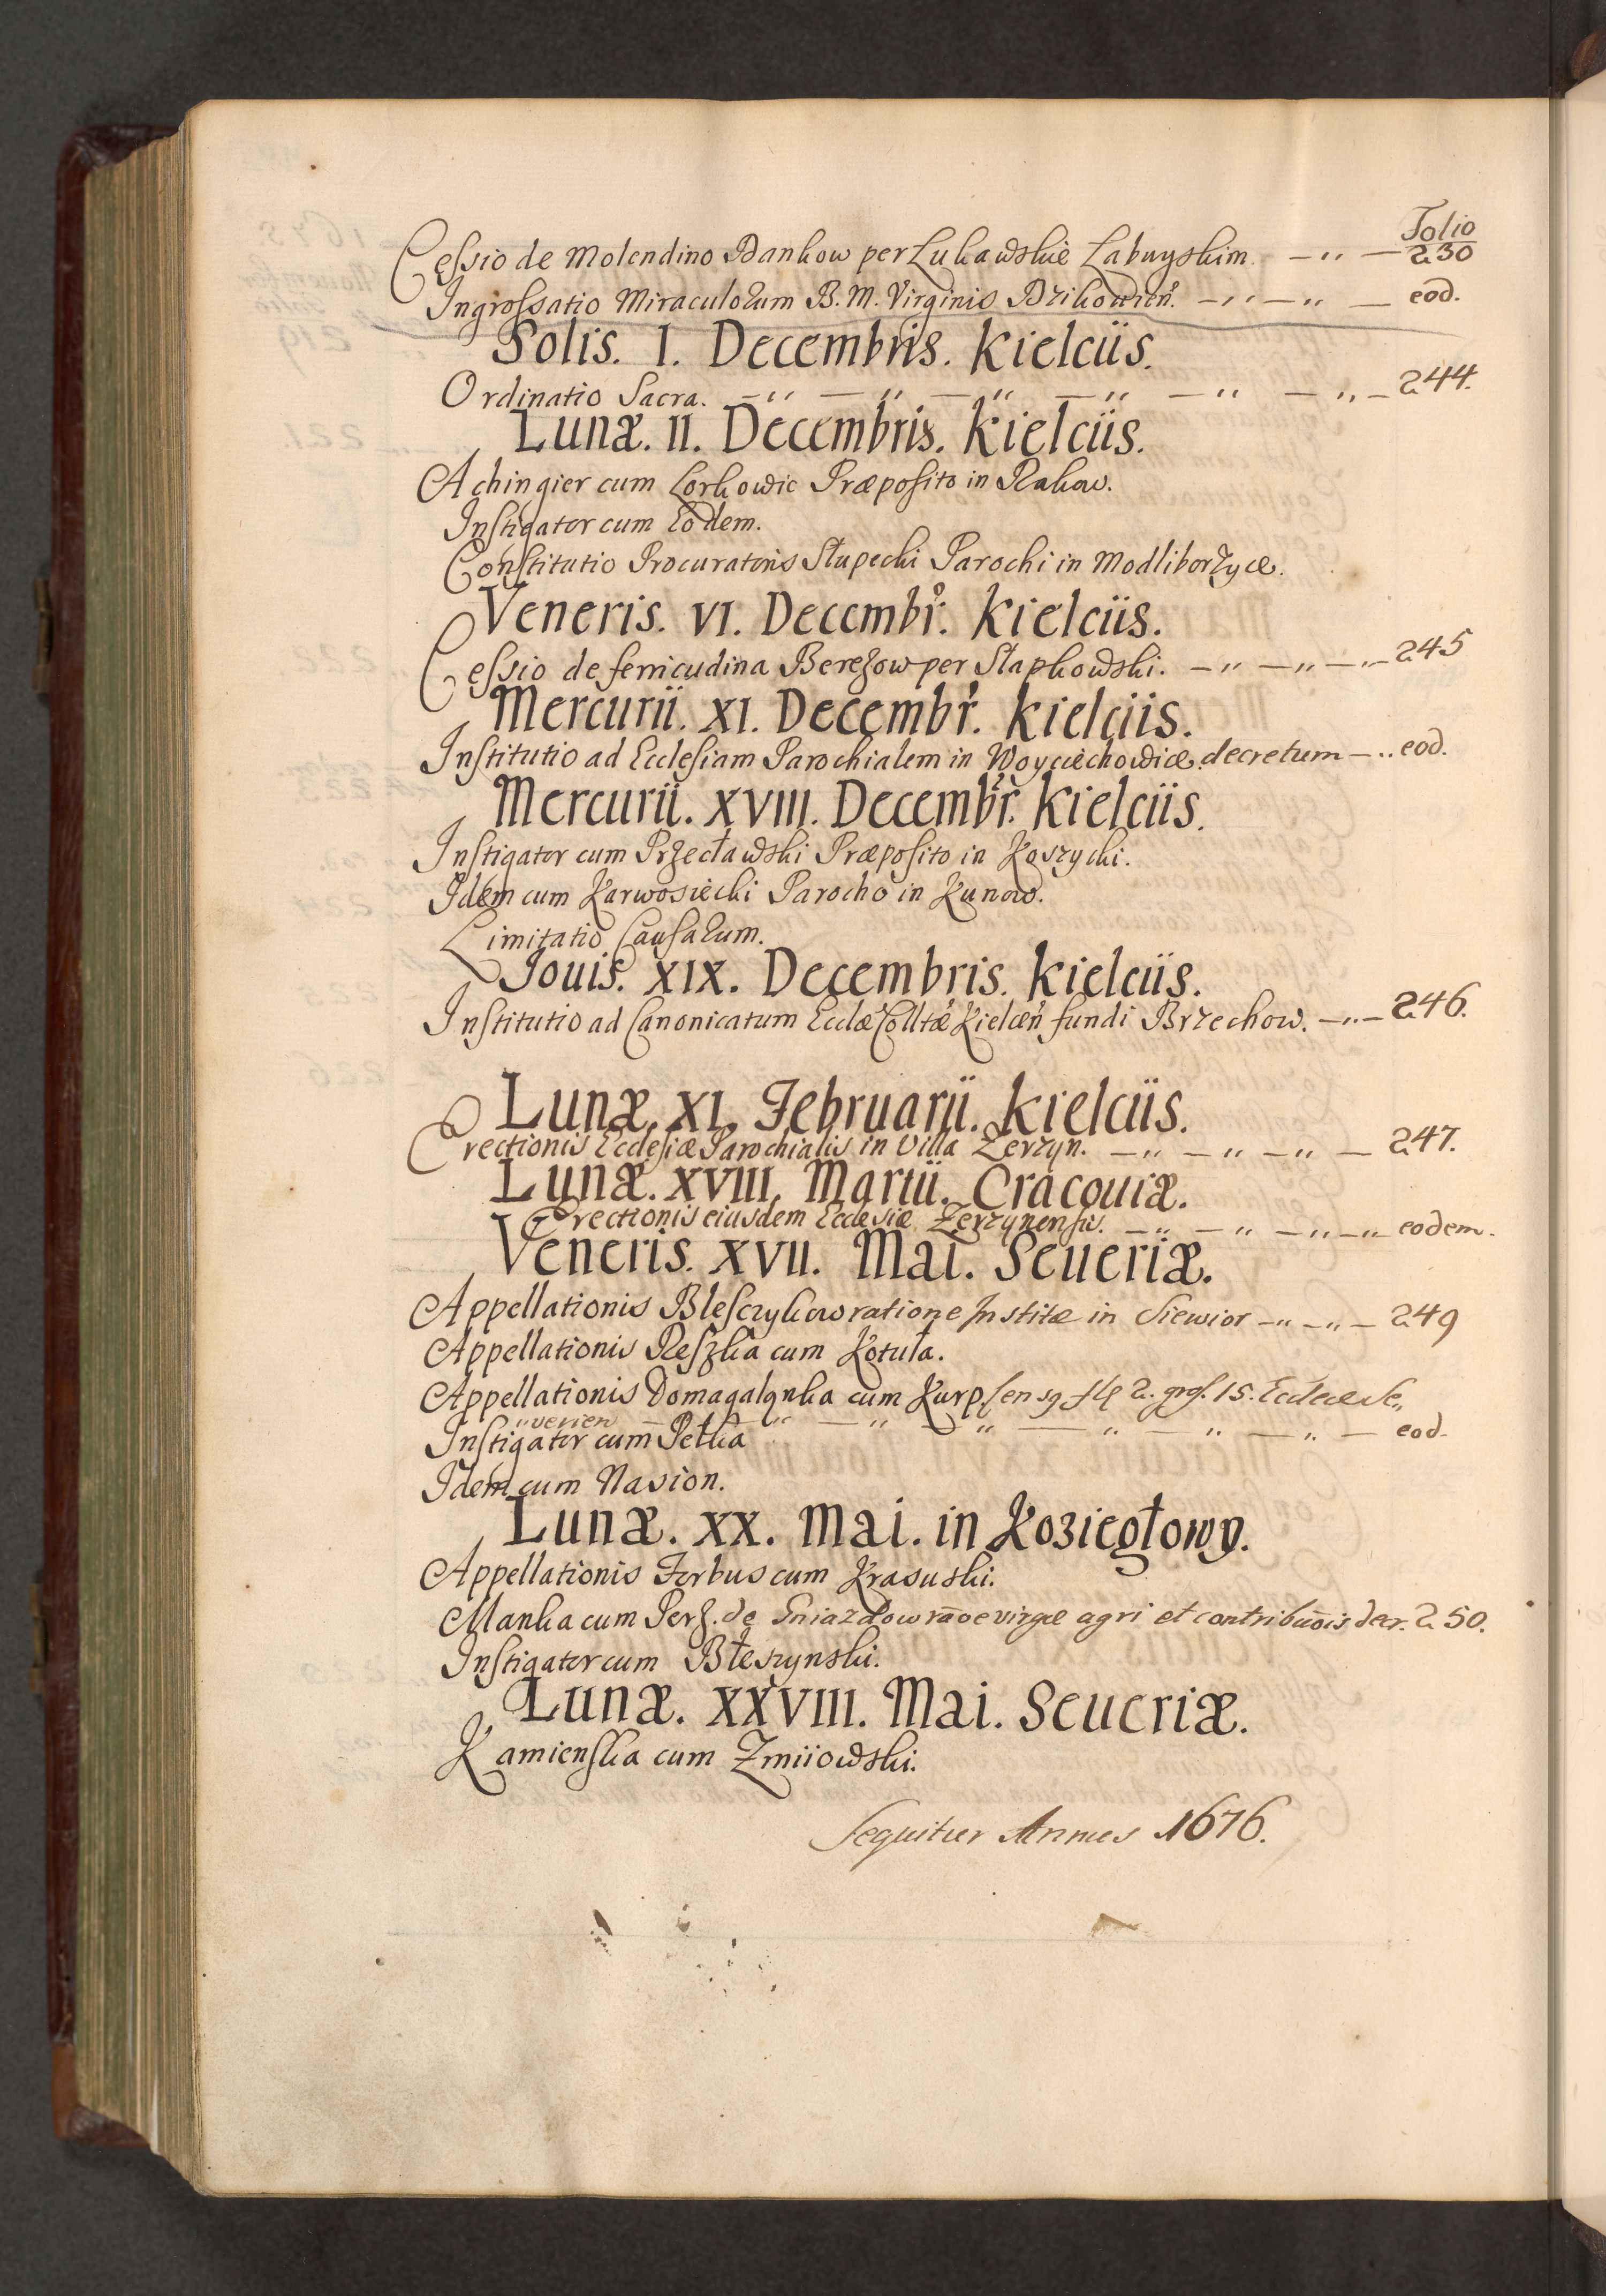 Folio
Cessio de Molendino Dankow per Lukawskie Labuyskim. — ,, — 230
Ingrossatio Miraculorum B. M. Virginis Dzikowień. — ,, — ,, — eod.
Solis. I. Decembris. Kielciis.
Ordinatio Sacra. — ,, — ,, — ,, — ,, — ,, — ,, — 244.
Lunæ. II. Decembris. Kielciis.
Achingier cum Lorkowic Præposito in Rakow.
Instigator cum Eodem.
Constitutio Procuratoris Słupecki Parochi in Modliborzyce.
Veneris. VI. Decembr. Kielciis.
Cessio de ferricudina Berezow per Słapkowski. — ,, — ,, — ,, — 245
Mercurii. XI. Decembr. Kielciis.
Institutio ad Ecclesiam Parochialem in Woyciechowice. decretum — ,, eod.
Mercurii. XVIII. Decembr. Kielciis.
Instigator cum Przecławski Præposito in Koszycki.
Idem cum Karwosiecki Parocho in Kunow.
Limitatio Causarum.
Jouis. XIX. Decembris. Kielciis.
Institutio ad Canonicatum Ecclæ Colltæ Kielceń fundi Brzechow. — ,, — 246.
Lunæ. XI. Februarii. Kielciis.
Erectionis Ecclesiæ Parochialis in Villa Zerzyn. — ,, — ,, — ,, — 247.
Lunæ. XVIII. Martii. Cracouiæ.
Erectionis eiusdem Ecclesiæ Zerzynensis. — ,, — ,, — ,, — ,, eodem.
Veneris. XVII. Mai. Seueriæ.
Appellationis Blesczykow ratione Institæ in Siewior — ,, — ,, — 249
Appellationis Reszka cum Kotuła.
Appellationis Domagalanka cum Kurp. 2. gros. 15. Ecclæ Se,,
,,verien — ,, — ,, — ,, — ,, — ,, — ,, — eod.
Instigator cum Petka
Idem cum Nasion.
Lunæ. XX. Mai. in Koziegłowy.
Appellationis Forbus cum Krasuski.
Manka cum Perz. de Gniazdow rāōe virgæ agri et contribuōis decr. 250.
Instigator cum Błeszynski.
Lunæ. XXVIII. Mai. Seueriæ.
Kamienska cum Zmiiowski.
Sequitur Annus 1676.